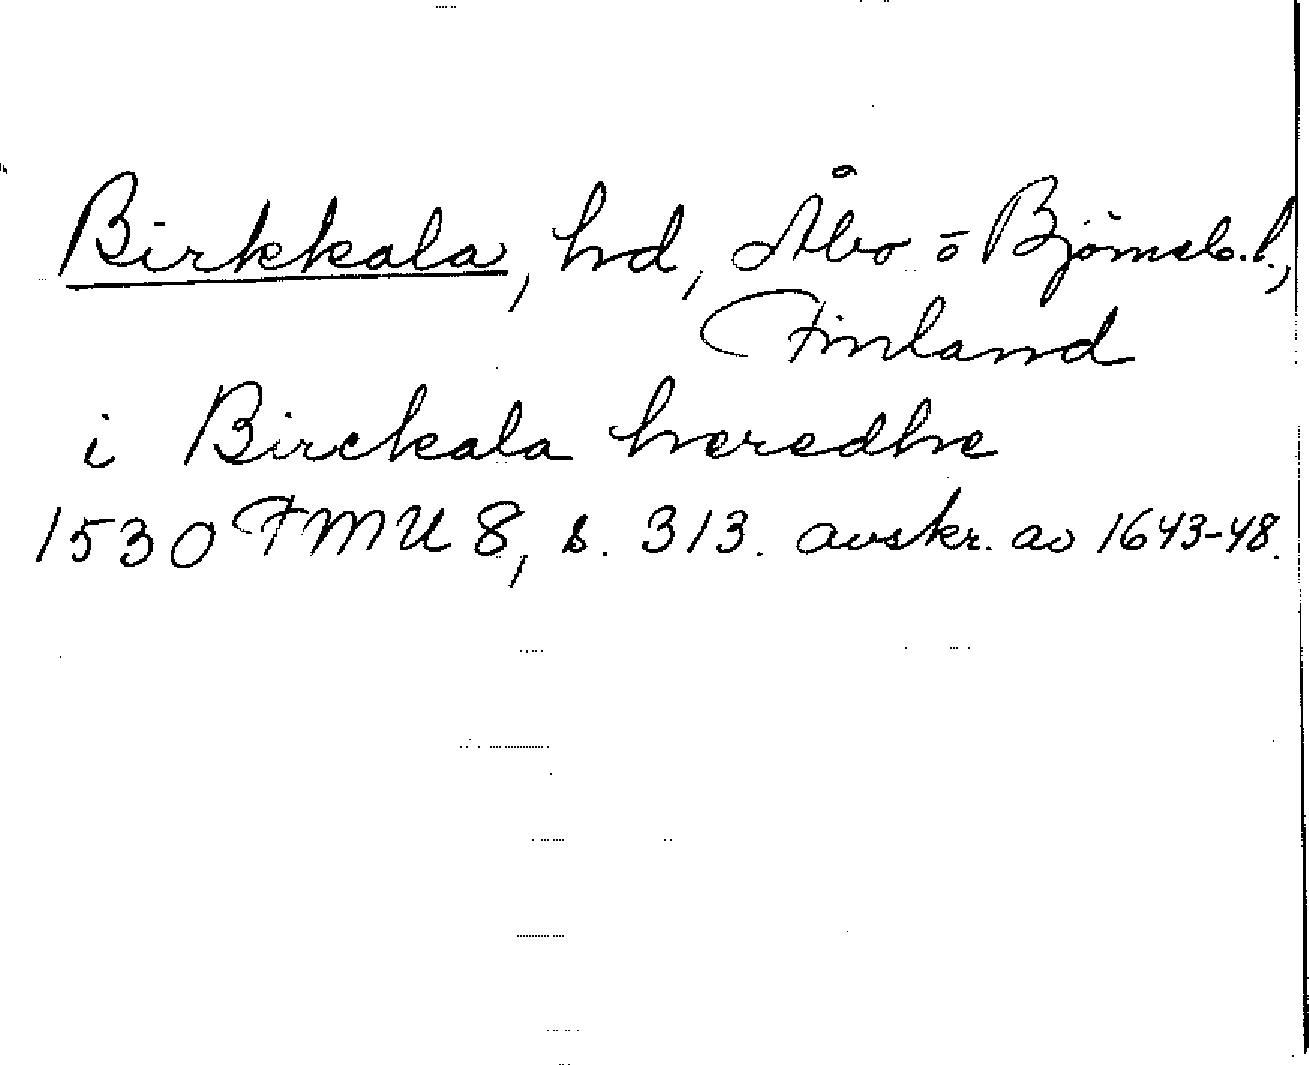 Birkkala, hd, Åbo o Björneb. l.,
Finland
i Birckala heredhe
1530 FMU 8, s. 313. avskr. av 1643-48.